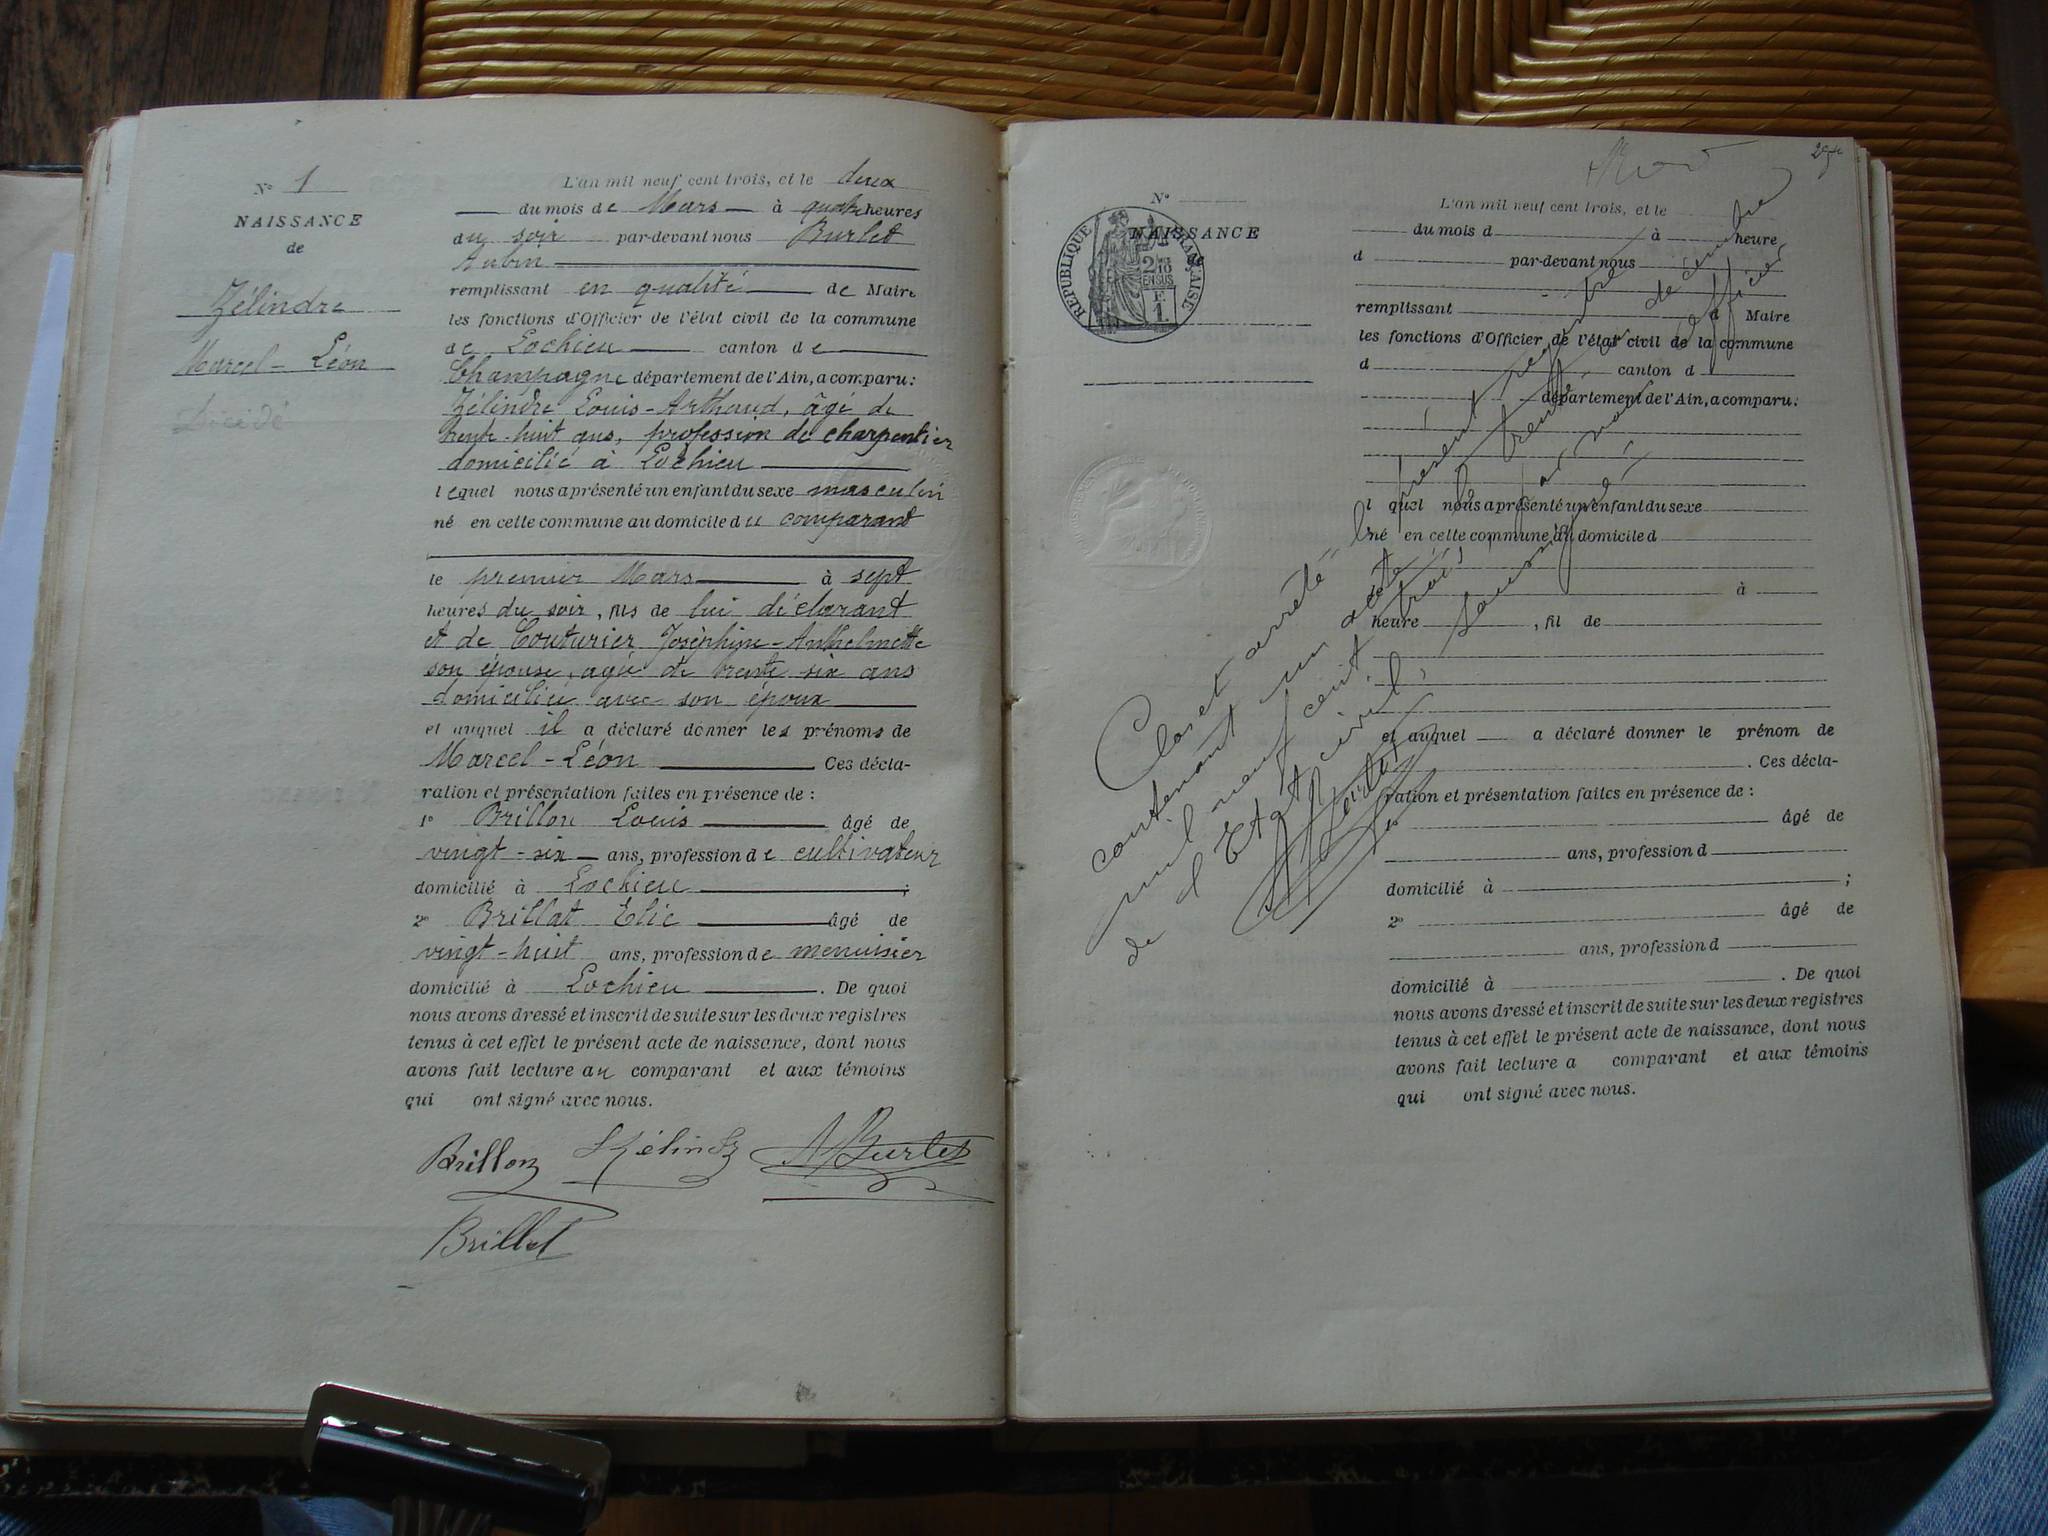 N° 1
NAISSANCE
de
Zélindre
Marcel - Léon
Décédé
L'an mil neuf cent trois, et le deux
du mois de Mars à quatre heures
du soir par-devant nous Burlet
Aubin
remplissant en qualité de Maire
les fonctions d'Officier de l'état civil de la commune
de Lochieu canton de
Champagne département de l'Ain, a comparu:
Zélindre Louis-Arthaud, âgé de
trente-huit ans, profession de charpentier
domicilié à Lochieu
lequel nous a présenté un enfant du sexe masculin
né en cette commune au domicile du comparant
le premier Mars à sept
heures du soir, fils de lui déclarant
et de Couturier Josephine-Anthelmette
son épouse, agée de trente six ans
domiciliée avec son époux
et auquel il a déclaré donner les prénoms de
Marcel-Léon Ces décla-
ration et présentation faites en présence de :
1° Brillon Louis âgé de
vingt-six ans, profession de cultivateur
domicilié à Lochieu ;
2° Brillat Elie âgé de
vingt-huit ans, profession de menuisier
domicilié à Lochieu . De quoi
nous avons dressé et inscrit de suite sur les deux registres
tenus à cet effet le présent acte de naissance, dont nous
avons fait lecture au comparant et aux témoins
qui ont signé avec nous.
Brillon Zélindre Burlet
Brillat
N°
NAISSANCE
RÉPUBLIQUE FRANÇAISE
2/10 EN SUS
F
1.
L'an mil neuf cent trois, et le
du mois d à heure
d par-devant nous
remplissant d Maire
les fonctions d'Officier de l'état civil de la commune
d canton d
département de l'Ain, a comparu:
l quel nous a présenté un enfant du sexe
né en cette commune au domicile d
le à
heure , fil de
et auquel a déclaré donner le prénom de
. Ces décla-
ration et présentation faites en présence de :
1° âgé de
ans, profession d
domicilié à ;
2° âgé de
ans, profession d
domicilié à . De quoi
nous avons dressé et inscrit de suite sur les deux registres
tenus à cet effet le présent acte de naissance, dont nous
avons fait lecture a comparant et aux témoins
qui ont signé avec nous.
Clos et arrêté le présent registre
contenant un acte, le trente-un décembre
mil neuf cent trois, par nous officier
de l'Etat civil, soussigné
Burlet